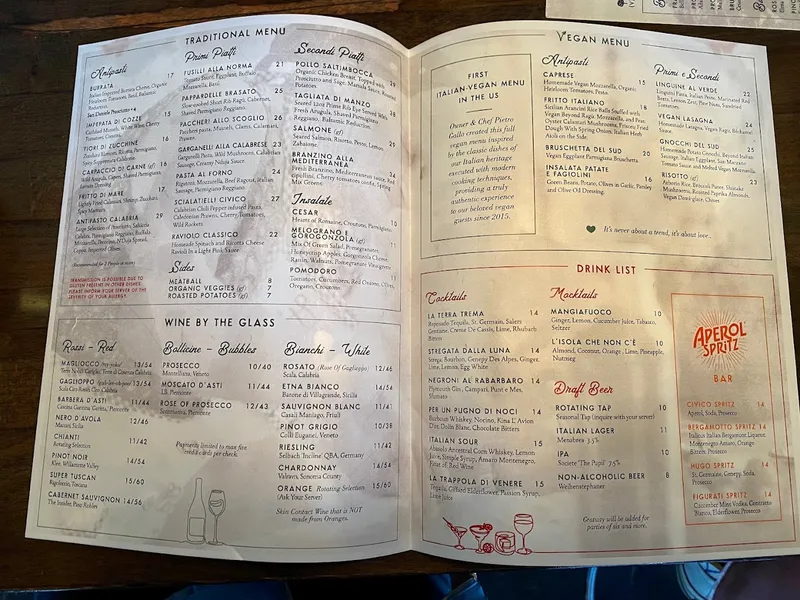 TRADITIONAL MENU
Antipasti
BURRATA 17
Italian Imported Burrata Cheese, Organic
Heirloom Tomatoes, Basil, Balsamic
Reduction.
San Daniele Prosciutto +4
IMPEPATA DI COZZE 15
Carlsbad Mussels, White Wine, Cherry
Tomatoes, Crostini.
FIORI DI ZUCCHINE 16
Zucchini Flowers, Ricotta, Parmigiano,
Spicy Soppressata Calabrese
CARPACCIO DI CARNE (gf) 16
Wild Arugula, Capers, Shaved Parmigiano,
Lemon Dressing
FRITTO DI MARE 17
Lightly Fried Calamari, Shrimp, Zucchini,
Spicy Marinara
ANTIPASTO CALABRIA 29
Large Selection of Prosciutto, Salsiccia
Calabra, Parmigiano Reggiano, Buffalo
Mozzarella, Pecorino, N'Duja Spread,
Coppa, Imported Olives.
Recommended for 2 People or more
TRANSMISSION IS POSSIBLE DUE TO
GLUTEN PRESENT IN OTHER DISHES.
PLEASE INFORM YOUR SERVER OF THE
SEVERITY OF YOUR ALLERGY.
Primi Piatti
FUSILLI ALLA NORMA 21
Tomato Sauce, Eggplant, Buffalo
Mozzarella, Basil.
PAPPARDELLE BRASATO 25
Slow-cooked Short Rib Ragú, Cabernet,
Shaved Parmigiano Reggiano.
PACCHERI ALLO SCOGLIO 26
Paccheri pasta, Mussels, Clams, Calamari,
Prawns
GARGANELLI ALLA CALABRESE 23
Garganelli Pasta, Wild Mushrooms, Calabrian
Sausage, Creamy Nduja Sauce
PASTA AL FORNO 24
Rigatoni, Mozzarella, Beef Ragout, Italian
Sausage, Parmigiano Reggiano
SCIALATIELLI CIVICO 27
Calabrian Chili Pepper infused Pasta,
Caledonian Prawns, Cherry Tomatoes,
Wild Rockets
RAVIOLO CLASSICO 22
Homemade Spinach and Ricotta Cheese
Ravioli In a Light Pink Sauce
Sides
MEATBALL 8
ORGANIC VEGGIES (gf) 7
ROASTED POTATOES (gf) 7
Secondi Piatti
POLLO SALTIMBOCCA 29
Organic Chicken Breast, Topped with
Prosciutto and Sage, Marsala Sauce,
Potatoes.
TAGLIATA DI MANZO 38
Seared 12oz Prime Rib Eye Served With
Fresh Arugula, Shaved Parmigiano
Reggiano, Balsamic Reduction.
SALMONE (gf)
Seared Salmon, Risotto, Pesto, Lemon
Zabaione.
BRANZINO ALLA
MEDITERRANEA 34
Fresh Branzino, Mediterranean sauce, Red
cipollini, Cherry tomatoes confit, Spring
Mix Greens
Insalate
CESAR 10
Hearts of Romaine, Croutons, Parmigiano.
MELOGRANO E
GOROGONZOLA (gf) 11
Mix Of Green Salad, Pomegranate,
Honeycrisp Apples, Gorgonzola Cheese,
Raisin, Walnuts, Pomegranate Vinaigrette
POMODORO 11
Tomatoes, Cucumbers, Red Onions, Olives,
Oregano, Croutons
WINE BY THE GLASS
Rossi - Red
MAGLIOCCO 13/54
GAGLIOPPO 13/54
BARBERA D'ASTI 11/44
Cascina Castlet, Goretta, Piemonte
NERO D'AVOLA 12/46
Maceri, Sicilia
CHIANTI 11/42
Rotating Selection
PINOT NOIR 14/54
Klee, Willamette Valley
SUPER TUSCAN 15/60
Rapaiolo, Toscana
CABERNET SAUVIGNON 14/56
The Insider, Paso Robles
Bollicine - Bubbles
PROSECCO 10/40
Montelliana, Veneto
MOSCATO D'ASTI 11/44
I.B, Piemonte
ROSE OF PROSECCO 12/43
Sommariva, Piemonte
Payments limited to max five
credit cards per check.
Bianchi - White
ROSATO (Rosé Of Gaglioppo) 12/46
Scala, Calabria
ETNA BIANCO 14/54
Barone di Villagrande, Sicilia
SAUVIGNON BLANC 11/41
Casali Maniago, Friuli
PINOT GRIGIO 10/38
Colli Euganei, Veneto
RIESLING 11/42
Selbach Incline QBA, Germany
CHARDONNAY 14/54
Valravn, Sonoma County
ORANGE Rotating Selection 15/60
(Ask Your Server)
Skin Contact Wine that is NOT
made from Oranges.
VEGAN MENU
FIRST
ITALIAN-VEGAN MENU
IN THE US
Owner & Chef Pietro
Gallo created this full
vegan menu inspired
by the classic dishes
of our Italian heritage
executed with modern
cooking techniques,
providing a truly
authentic experience
to our beloved vegan
guests since 2015.
Antipasti
CAPRESE 18
Homemade Vegan Mozzarella, Organic
Heirloom Tomatoes, Pesto
FRITTO ITALIANO 20
Sicilian Arancini Rice Balls Stuffed with
Vegan Beyond Ragú, Mozzarella, and Peas.
Oyster Calamari Mushrooms, Frittes Fried
Dough With Spring Onion, Italian Herb
Aioli on the Side.
BRUSCHETTA DEL SUD 20
Vegan Eggplant Parmigiana Bruschetta
INSALATA PATATE
E FAGIOLINI 16
Green Beans, Potato, Olives in Garlic, Parsley
and Olive Oil Dressing.
Primi e Secondi
LINGUINE AL VERDE 22
Linguini Pasta, Italian Pesto, Marinated Red
Beets, Lemon Zest, Pine Nuts, Sundried
Tomatoes.
VEGAN LASAGNA 24
Homemade Lasagna, Vegan Ragú, Béchamel
Sauce.
GNOCCHI DEL SUD 25
Homemade Potato Gnocchi, Beyond Italian
Sausage, Italian Eggplant, San Marzano
Tomato Sauce, and Melted Vegan Mozzarella
RISOTTO (gf) 23
Arborio Rice, Broccoli Puree, Shiitake
Mushroom, Roasted Paprika Almonds,
Vegan Demi-glaze, Chives
It's never about a trend, it's about love...
DRINK LIST
Cocktails
LA TERRA TREMA 14
Reposado Tequila, St. Germain, Salers
Gentiane, Creme De Cassis, Lime, Rhubarb
Bitters
STREGATA DALLA LUNA 14
Strega, Bourbon, Genepy Des Alpes, Ginger,
Lime, Lemon, Egg White
NEGRONI AL RABARBARO 14
Plymouth Gin, Campari, Punt e Mes,
Sfumato
PER UN PUGNO DI NOCI 14
Bourbon Whiskey, Nocino, Kina L'Avion
D'or, Dolin Blanc, Chocolate Bitters
ITALIAN SOUR 15
Abasolo Ancestral Corn Whiskey, Lemon
Juice, Simple Syrup, Amaro Montenegro,
Float of Red Wine
LA TRAPPOLA DI VENERE 15
Tequila, Giffard Elderflower, Passion Syrup,
Lime Juice
Mocktails
MANGIAFUOCO 10
Ginger, Lemon, Cucumber Juice, Tabasco,
Seltzer
L'ISOLA CHE NON C'È 10
Almond, Coconut, Orange, Lime, Pineapple,
Nutmeg
Draft Beer
ROTATING TAP 10
Seasonal Tap (inquire with your server)
ITALIAN LAGER 11
Menabrea 3.5%
IPA 10
Societe 'The Pupil' 7.5%
NON-ALCOHOLIC BEER 8
Weihenstephaner
Gratuity will be added for
parties of six and more.
APEROL
SPRITZ
BAR
CIVICO SPRITZ 14
Aperol, Soda, Prosecco
BERGAMOTTO SPRITZ 14
Italicus Italian Bergamot Liqueur,
Montegnegro Amaro, Orange
Bitters, Prosecco
HUGO SPRITZ 14
St. Germaine, Genepy, Soda,
Prosecco
FIGURATI SPRITZ 14
Cucumber Mint Vodka, Contratto
Bianco, Elderflower, Prosecco